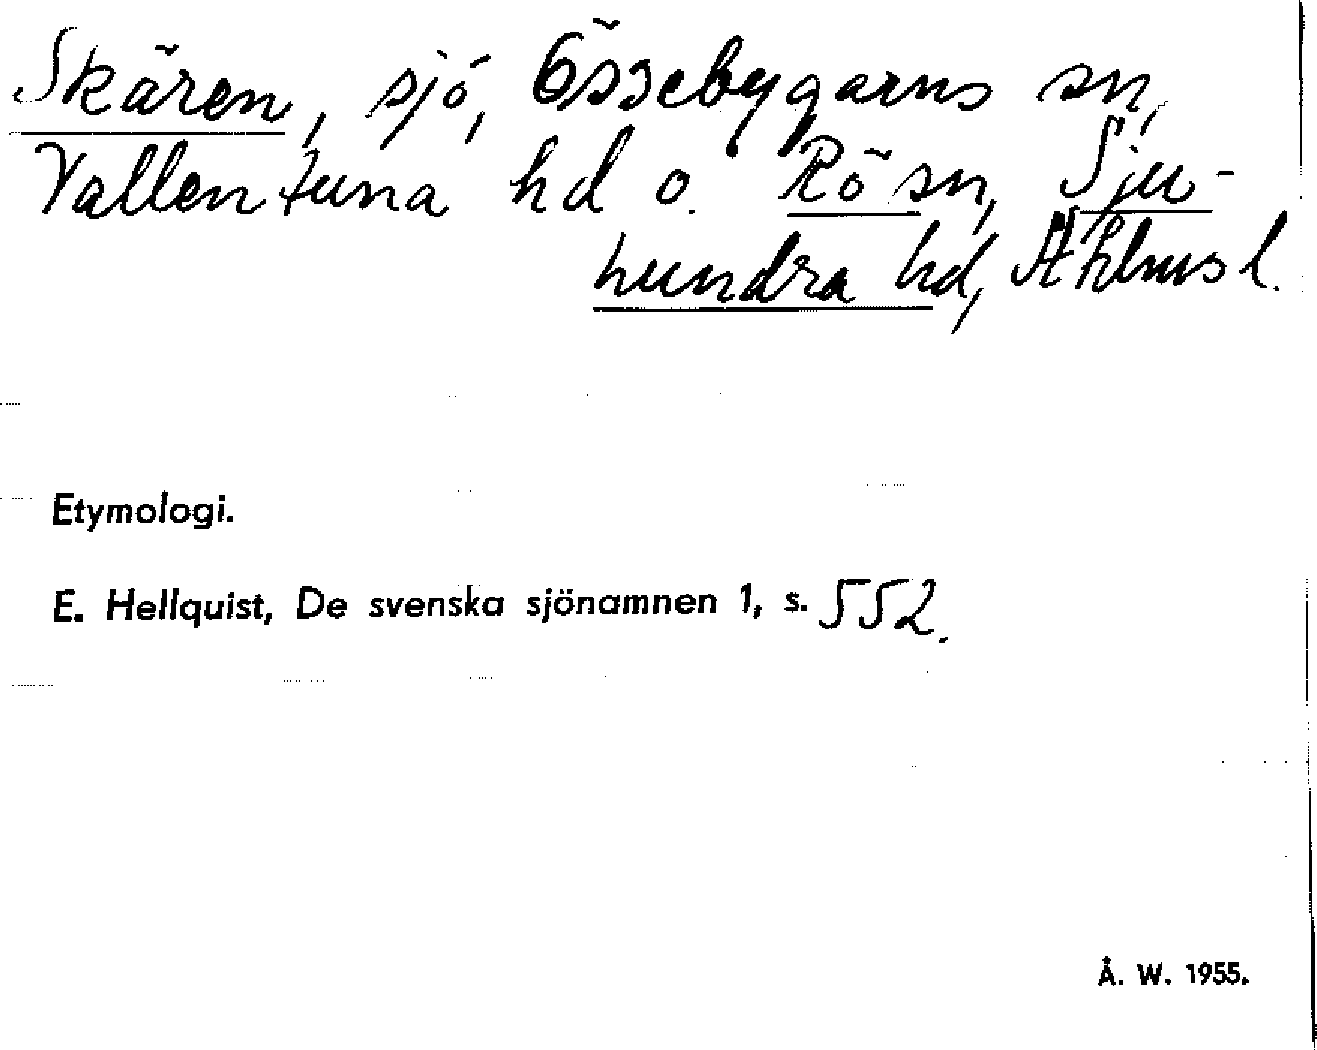 Skären, sjö, Össebygarns sn,
Vallentuna hd o. Rö sn, Sju-
hundra hd, Sthlms l.
Etymologi.
E. Hellquist, De svenska sjönamnen 1, s. 552.
Å. W. 1955.